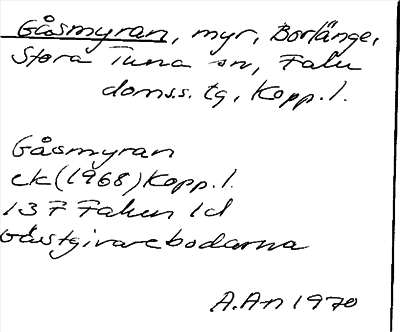 Gåsmyran, myr, Borlänge,
Stora Tuna sn, Falu
domss. tg, Kopp. l.
Gåsmyran
ek (1968) Kopp. l.
13 F Falun 1d
Gästgivarebodarna
A.An 1970